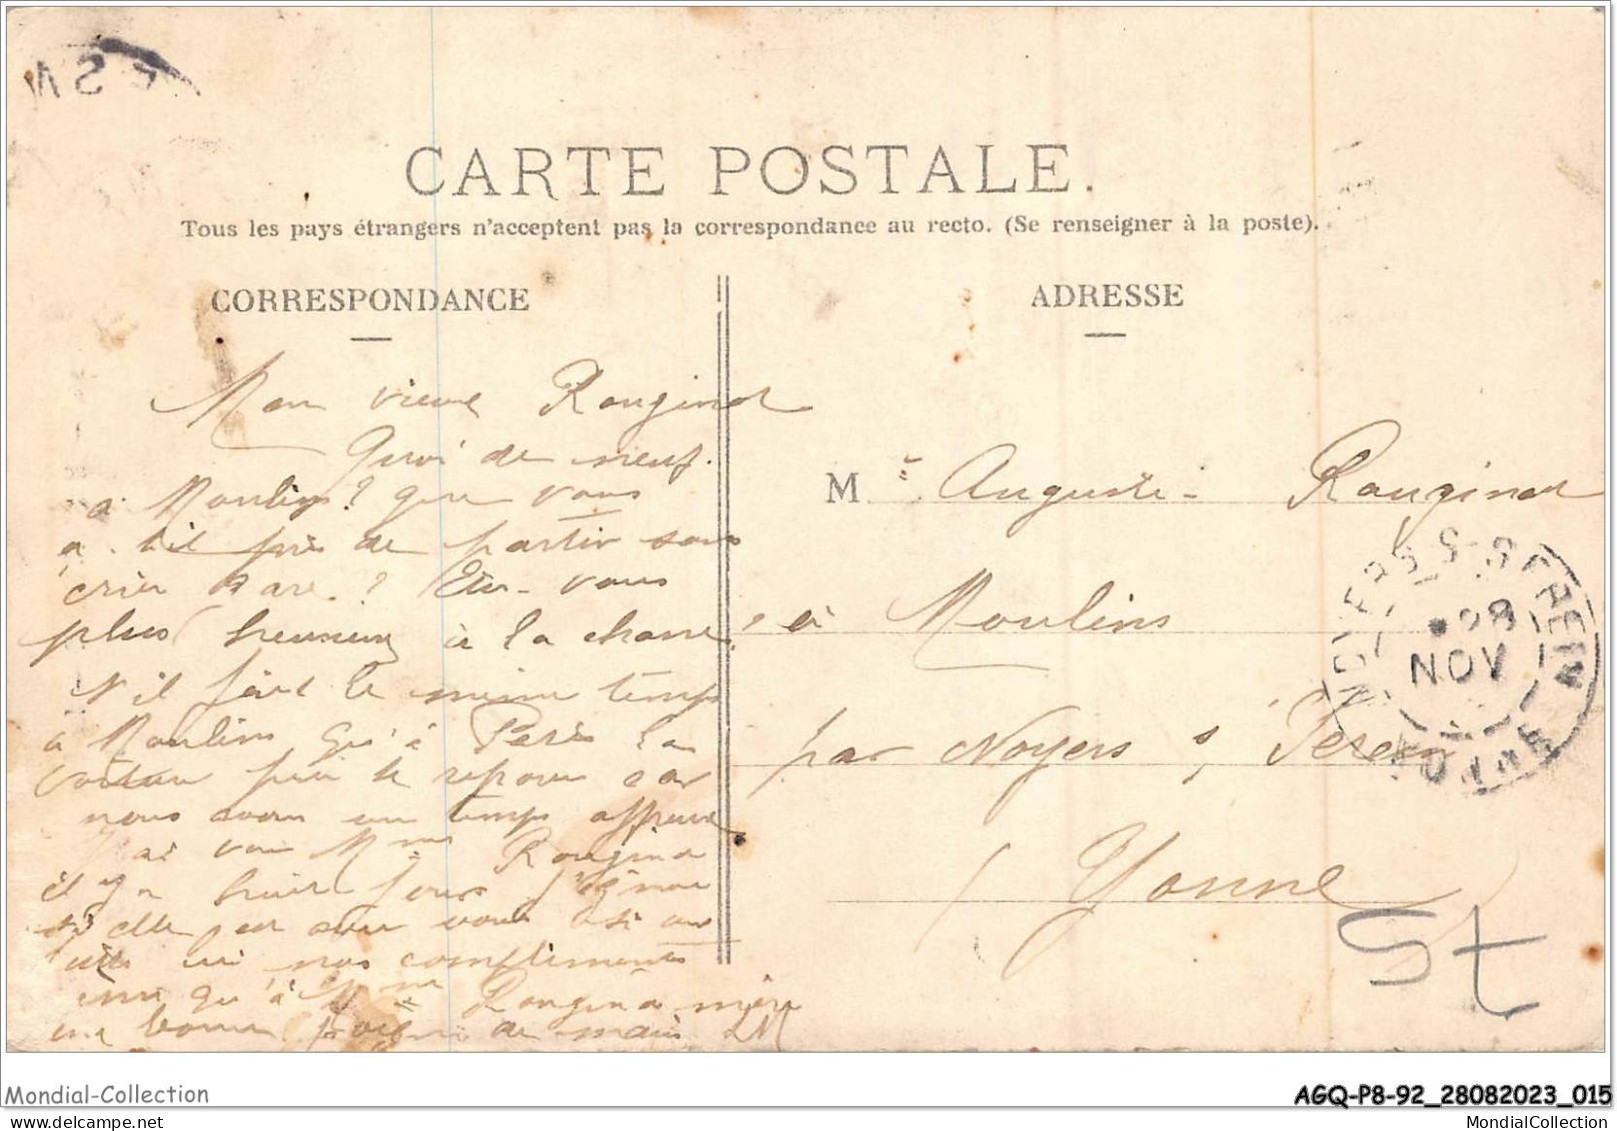 CARTE POSTALE.
Tous les pays étrangers n'acceptent pas la correspondance au recto. (Se renseigner à la poste).
CORRESPONDANCE
ADRESSE
Mon vieux Rouginot
Quoi de neuf.
a Moulins ? que vous
a-t-il pris de partir sans
crier gare ? Etes-vous
plus heureux à la chasse,
S'il fait le même temps
à Moulins qu'à Paris la
nous avons un temps affreux
J'ai vu Mme Rouginot
il y a huit jours
si elle est avec vous
nos compliments
qu'à Mme Rouginot mère
une bonne poignée de main LM
Mr Auguste Rouginot
à Moulins
par Noyers s/ Serein
Yonne
NOYERS S-SEREIN
28
NOV
YONNE
ESN
St
Mondial-Collection
AGQ-P8-92_28082023_015
MondialCollection.com